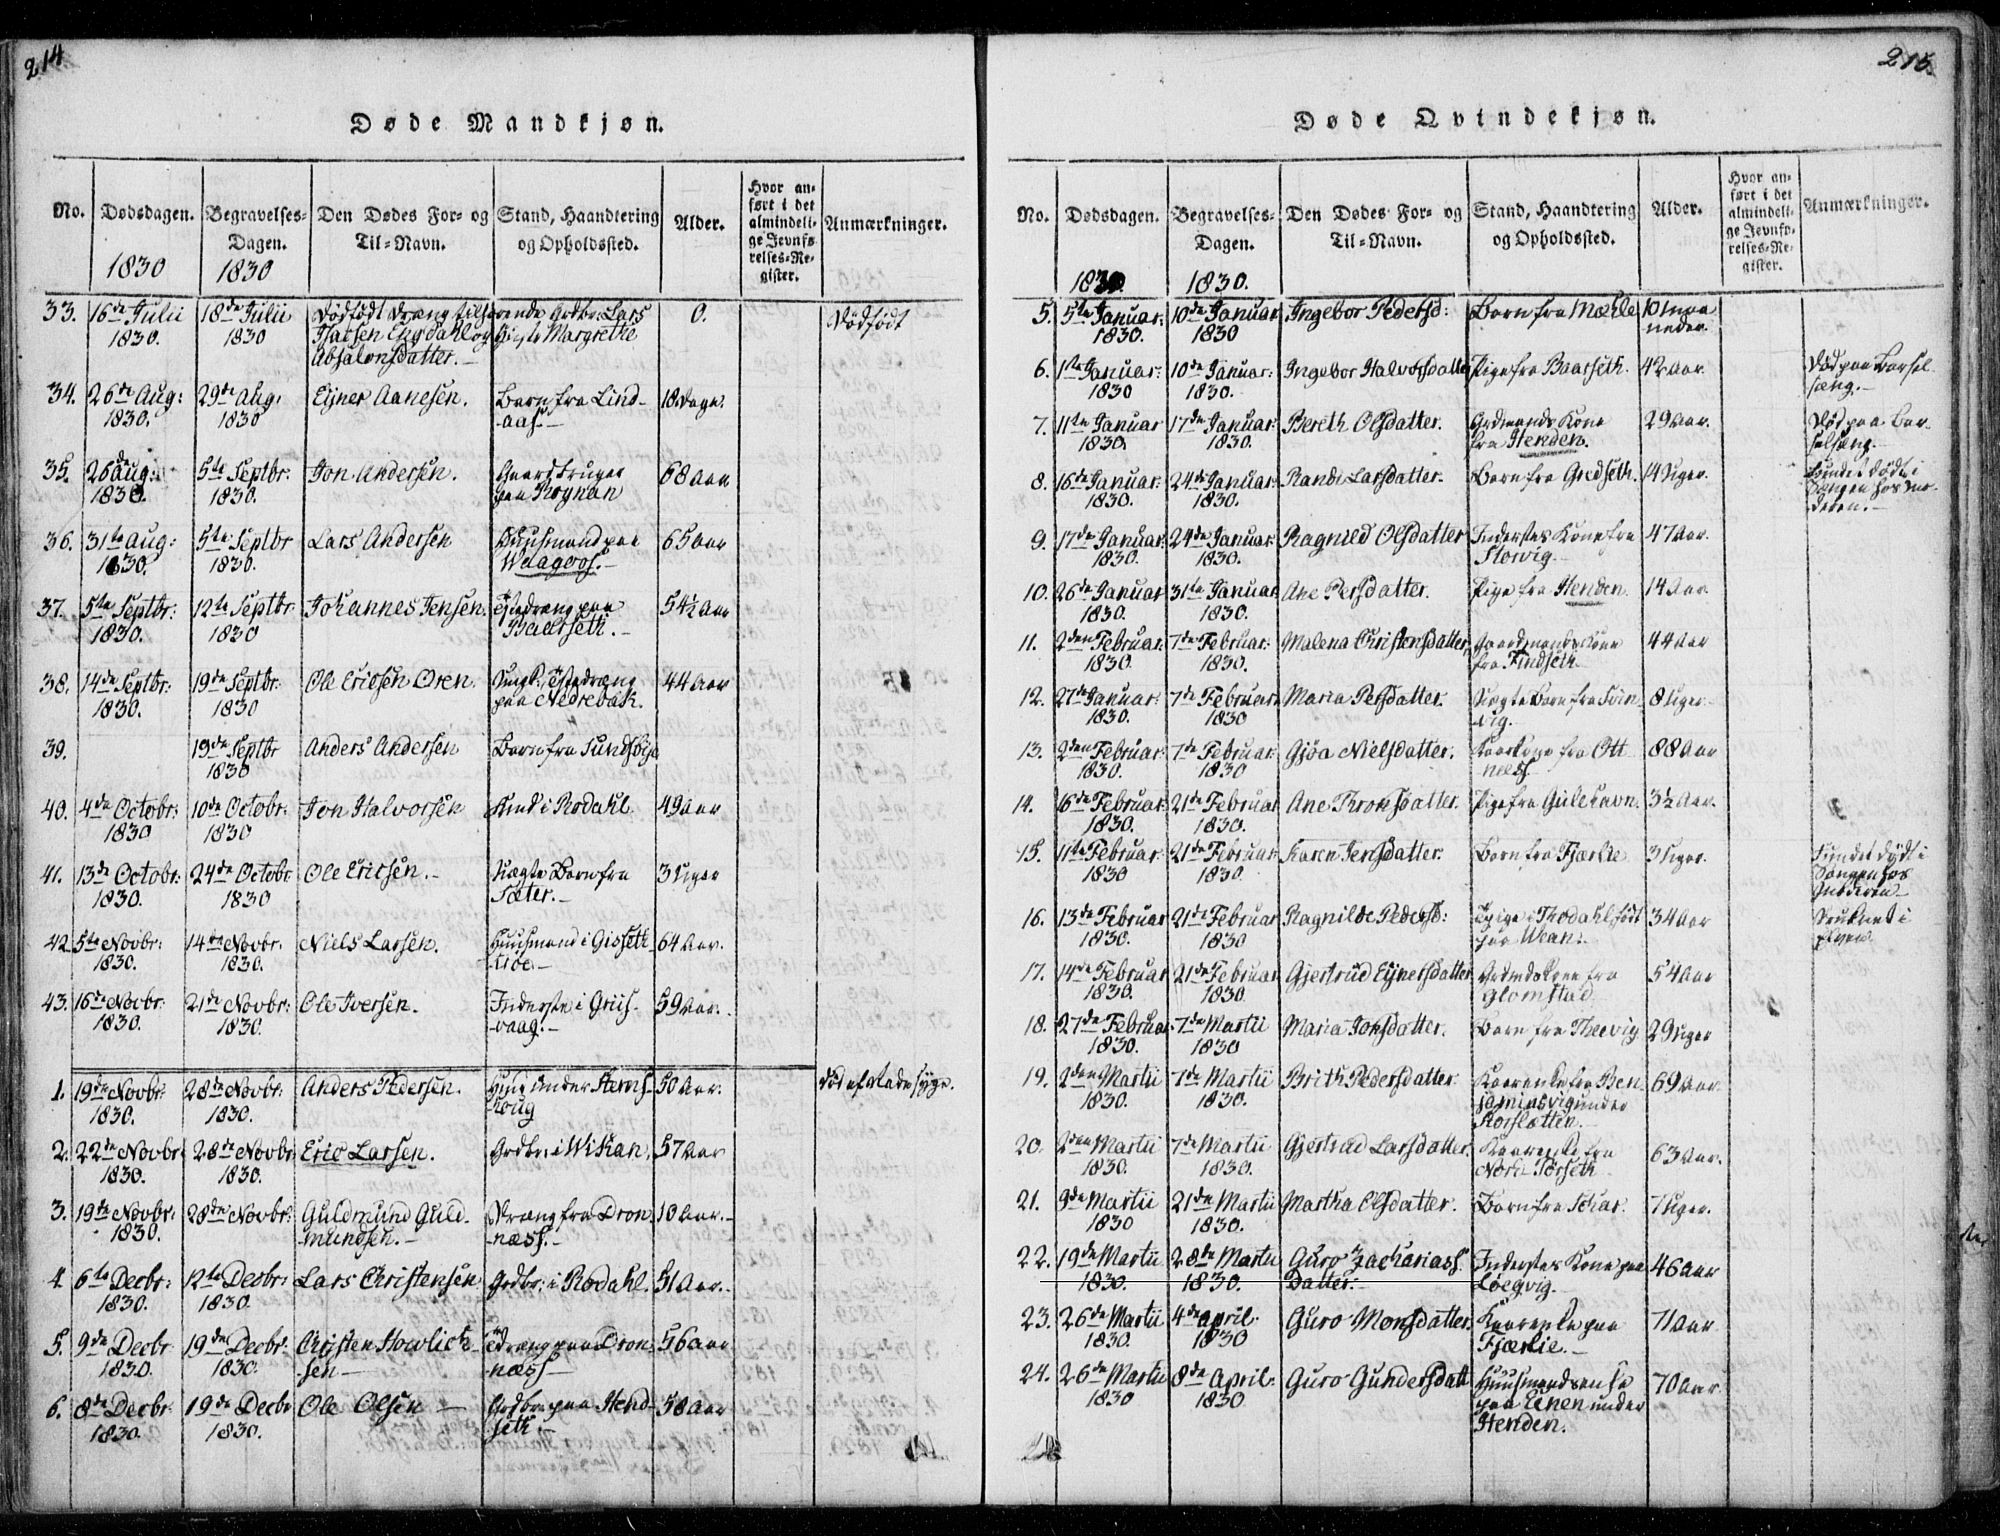 214
Døde Mandkjøn.
No. Dødsdagen. Begravelses-Dagen. Den Dødes For- og Til-Navn. Stand, Haandtering og Opholdssted. Alder. Hvor anført i det almindelige Jevnførelses-Register. Anmærkninger.
1830 1830
33. 16de Julii 18de Julii Dødfødt Dræng tilhørende Grdbr: Lars 0. Dødfødt
1830. 1830 Isacsen Engdahl og Margrethe
Absalonsdatter.
34. 26de Aug: 29de Aug: Ejner Aanesen. Barn fra Lind- 18. Dage.
1830. 1830 aas.
35. 26de Aug: 5te Septbr: Jon Andersen. Gaardbruger 68 Aar
1830. 1830. paa Roynan
36. 31te Aug: 5te Septbr Lars Andersen Huusmand paa 65 Aar
1830. 1830. Waagoos.
37. 5te Septbr: 12te Septbr Johannes Jensen. Tjdræng paa 54½ Aar
1830. 1830 Baarseth.
38. 14de Septbr: 19de Septbr: Ole Ericsen Oren. Tjdræng 44 Aar
1830. 1830 paa Nedrebak.
39. 19de Septbr Anders Andersen Barn fra Sundsbye
1830
40. 4de Octobr: 10de Octobr: Jon Halvorsen i Rodahl. 49 Aar
1830 1830
41. 13de Octobr: 24de Octobr Ole Ericsen. Uægte Barn fra 3 Uger
1830. 1830 Sæter.
42. 5te Novbr: 14de Novbr: Niels Larsen. Huusmand i Gisseth 64 Aar.
1830. 1830.
43. 16de Novbr: 21de Novbr: Ole Iversen. Inderste i Griis- 59 Aar.
1830. 1830. vaag.
1. 19de Novbr: 28de Novbr: Anders Pedersen. under Hems- 50 Aar. Død af Radesyge.
1830. 1830. koug
2. 22de Novbr 28de Novbr: Eric Larsen. Grdbr: i Wikan. 57 Aar
1830. 1830.
3. 19de Novbr: 28de Novbr: Guldmund Guld- Dræng fra Dron- 10 Aar.
1830. mundsen. næss.
4. 6te Decbr: 12te Decbr: Lars Christensen Grdbr: i Rodahl. 51 Aar.
1830. 1830.
5. 9de Decbr 19de Decbr: Christen Howlich- Tdræng paa Dron- 56 Aar
1830. 1830. sen næss
6. 8de Decbr: 19de Decbr Ole Olsen Grdbr: paa Hend- 58 Aar
1830. 1830. seth.
215.
Døde Qvindekjøn.
No. Dødsdagen. Begravelses-Dagen. Den Dødes For- og Til-Navn. Stand, Haandtering og Opholdssted. Alder. Hvor anført i det almindelige Jevnførelses-Register. Anmærkninger.
1830. 1830.
5. 5te Januar: 10de Januar Ingebor Pedersd: Barn fra Mæhle 10 maa
1830. 1830 neder.
6. 1ste Januar: 10de Januar: Ingebor Halvorsdatter Pige fra Baarseth. 42 Aar Død paa Barsel
1830 1830. sæng.
7. 11te Januar 17de Januar: Bereth Olsdatter. Grdmands Kone 29 Aar. Død paa Bar
1830. 1830. fra Henden. selsæng.
8. 16de Januar: 24de Januar: Randi Larsdatter. Barn fra Gredseth. 14 Uger. Fundet dødt i
1830. 1830. Sængen hos Mo
deren.
9. 17de Januar: 24de Januar: Ragnild Olsdatter Inderstes Kone fra 47 Aar.
1830. 1830. Storvig.
10. 26de Januar 31te Januar Ane Persdatter. Pige fra Henden. 14 Aar.
1830. 1830.
11. 2den Februar: 7de Februar: Malena Christensdatter, Gaardmandskone 44 Aar
1830. 1830. fra Findseth.
12. 27de Januar: 7de Februar: Maria Persdatter. Uægte Barn fra 8 Uger.
1830. 1830 vig.
13. 2den Februar: 7de Februar: Gjøa Nielsdatter. fra Ott 88 Aar
1830. 1830 næss
14. 16de Februar: 21de Februar Ane Thronsdatter. Pige fra Gulehavn. 3½ Aar.
1830. 1830.
15. 11te Februar: 21de Februar: Karen Jensdatter. Barn fra Fjærlie 3 Uger. Fundet dødt i
1830 1830. Sængen hos
16. 13de Februar 21de Februar Ragnilde Pedersd: Tpige i Thodahl født 34 Aar Druknet i
1830. 1830 paa Wean. Elven.
17. 14de Februar 21de Februar Gjertrud Ejnersdatter Grdmdskone fra 54 Aar
1830. 1830. Glomstad
18. 27de Februar: 7de Martii Maria Jonsdatter. Barn fra Theevig 29 Uger
1830. 1830
19. 2den Martii 7de Martii Brith Pedersdatter. Kaarenke fra Ben- 69 Aar.
1830. 1830. jaminsvig under
Korslætten.
20. 2den Martii 7de Martii Gjertrud Larsdatter. Kaarenke fra 63 Aar.
1830. 1830. Nord Torseth
21. 9de Martii 21de Martii Martha Elsdatter. Barn fra Schar. 7 Uger.
1830 1830.
22. 19de Martii 28de Martii Guro Zachariass Inderstes Kone paa 46 Aar
1830. 1830. Datter: Loegvig.
23. 26de Martii 4de April: Guro Monsdatter. Kaarenke paa 71 Aar.
1830. 1830 Fjærlie.
24. 26de Martii 8de April: Guro Gundersdatt Huusmandsenke 70 Aar.
1830 1830 paa Einen under
Henden.